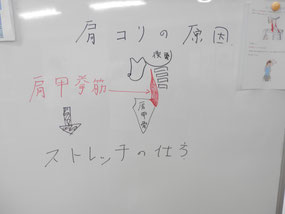 肩コリの原因
頚椎
肩甲挙筋
肩甲骨
ストレッチの仕方